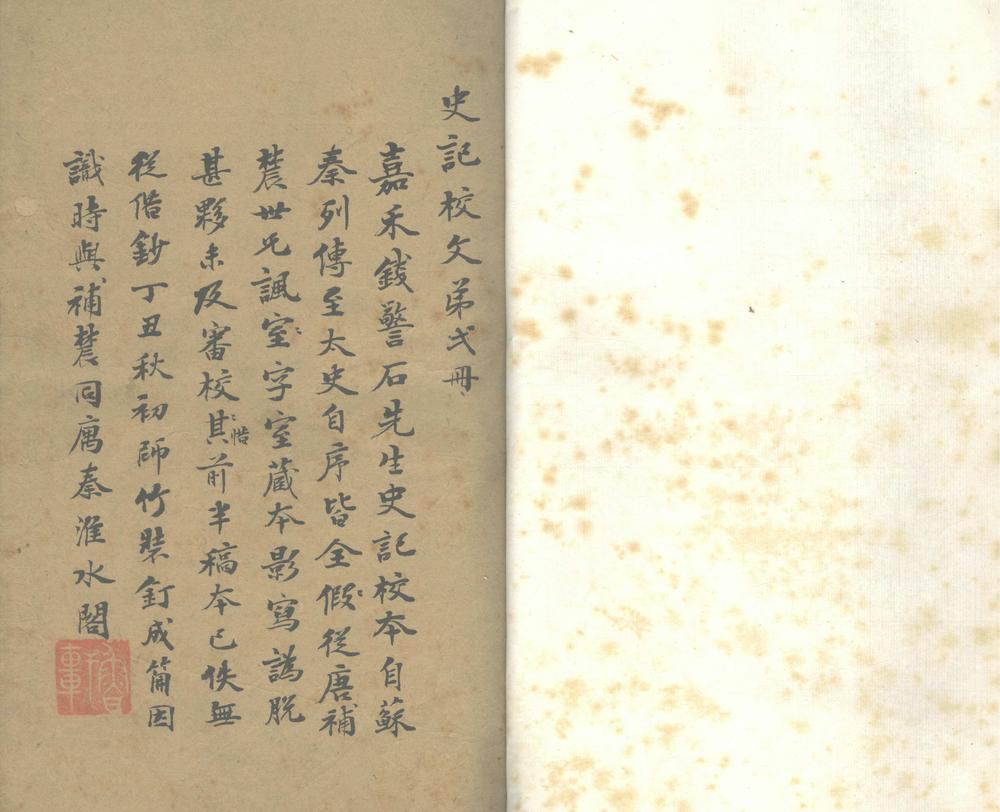 史記校文弟弍冊
嘉禾錢警石先生史記校本自蘇
秦列傳至太史自序皆全假從唐補
襛世兄諷室字室藏本影寫譌脫
甚夥未及審校其惜前半稿本已佚無
從借鈔丁丑秋初師竹裝釘成箾因
識時與補襛同寓秦淮水閣